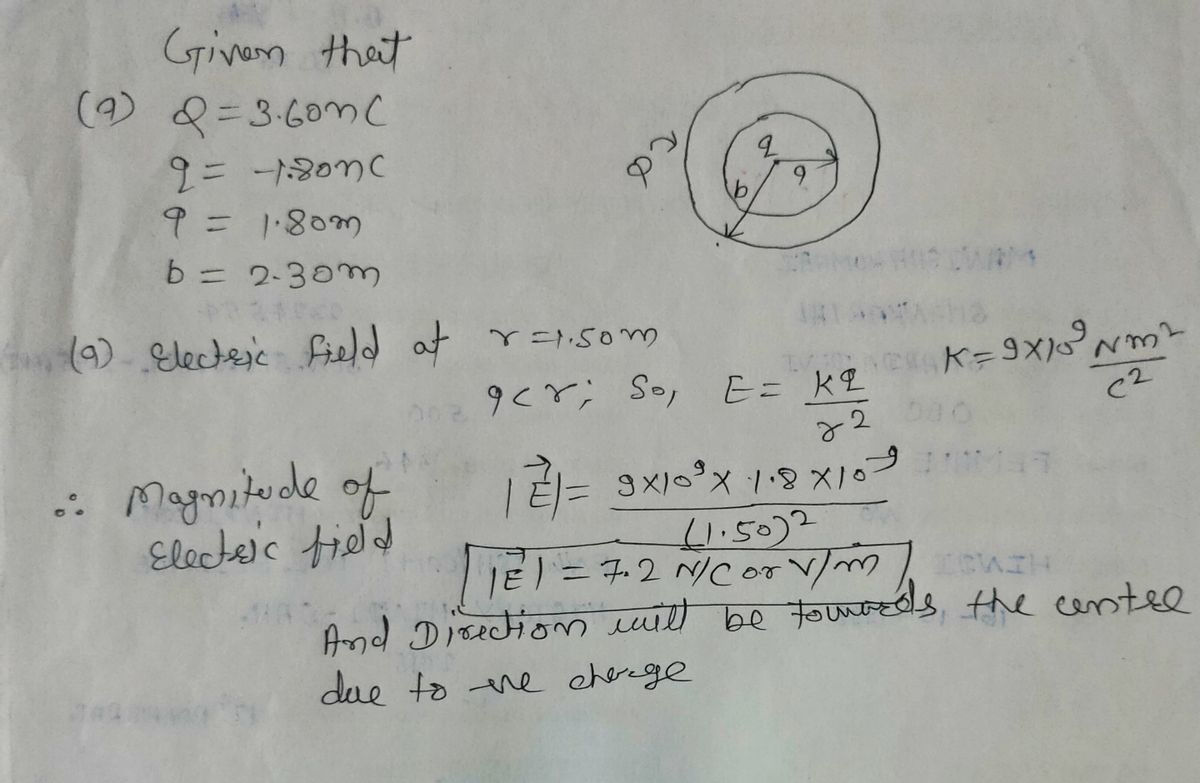 Given that
(a) Q = 3.60nC
q = -1.80nC
a = 1.80m
b = 2.30m
Q
q
a
b
(a) Electric field at r = 1.50m
K = 9×10⁹ Nm²/C²
a<r; So, E = kq/r²
∴ Magnitude of Electric field
|E⃗| = 9×10⁹ × 1.8 ×10⁻⁹/(1.50)²
|E⃗| = 7.2 N/C or V/m
And Direction will be towards the centre
due to -ve charge